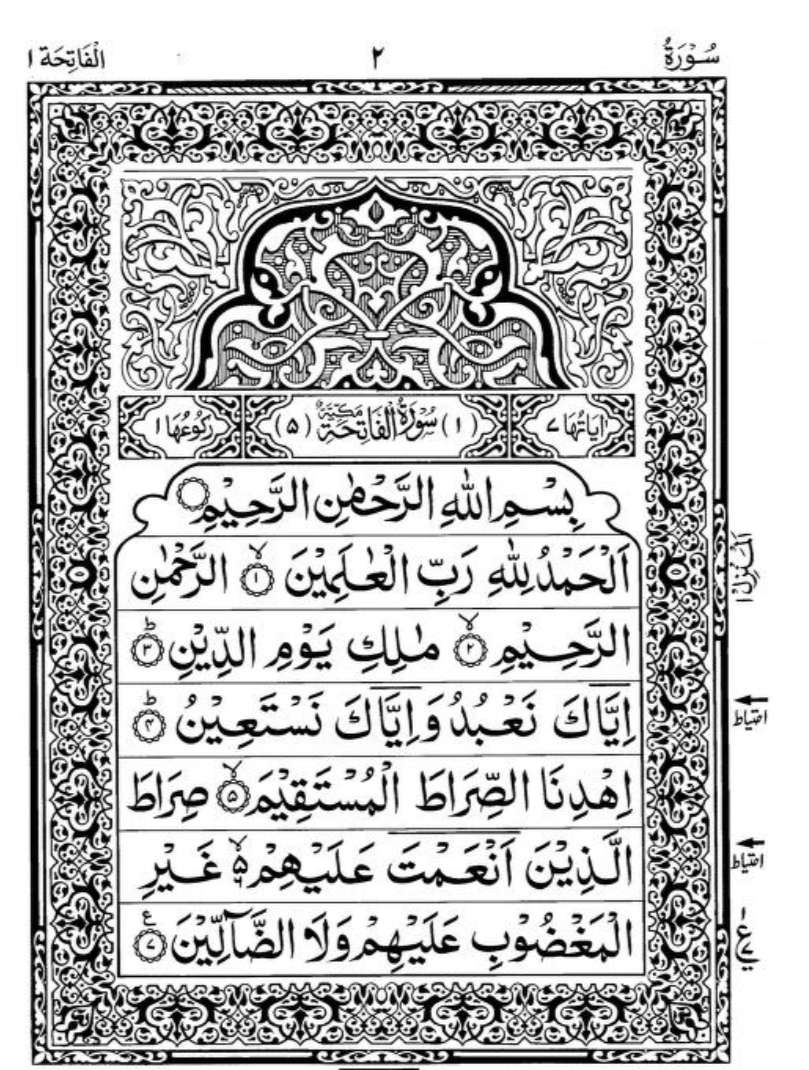 سُوْرَةُ
٢
الْفَاتِحَة ١
اٰيَاتُهَا ٧
(١) سُوْرَةُ الْفَاتِحَةِ مَكِّيَّةٌ (٥)
رُكُوْعُهَا ١
بِسْمِ اللّٰهِ الرَّحْمٰنِ الرَّحِيْمِ
اَلْحَمْدُ لِلّٰهِ رَبِّ الْعٰلَمِيْنَ ۙ﴿١﴾ الرَّحْمٰنِ
الرَّحِيْمِ ۙ﴿٢﴾ مٰلِكِ يَوْمِ الدِّيْنِ ؕ﴿٣﴾
اِيَّاكَ نَعْبُدُ وَاِيَّاكَ نَسْتَعِيْنُ ؕ﴿۴﴾
اِهْدِنَا الصِّرَاطَ الْمُسْتَقِيْمَ ۙ﴿۵﴾ صِرَاطَ
الَّذِيْنَ اَنْعَمْتَ عَلَيْهِمْ ۙ۵ ٦ غَيْرِ
الْمَغْضُوْبِ عَلَيْهِمْ وَلَا الضَّآلِّيْنَ ﴿٧﴾ ع
اَلْمَنْزِل ١
احتیاط
احتیاط